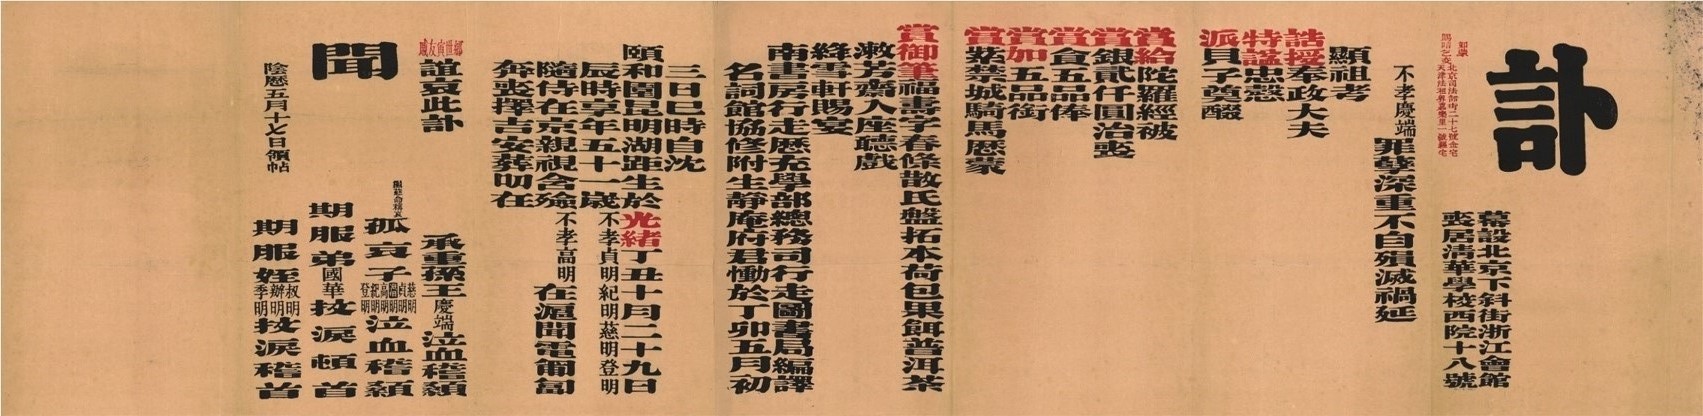 訃
幕設北京下斜街浙江會館
喪居清華學校西院十八號
如蒙
賜唁之交
北京司法部街二十七號金宅
天津法租界嘉樂里一號羅宅
不孝慶端罪孽深重不自殞滅禍延
顯祖考
誥授奉政大夫
特謚忠愨
派貝子奠醊
賞給陀羅經被
賞銀貳仟圓治喪
賞食五品俸
賞加五品銜
賞紫禁城騎馬歷蒙
賞御筆福壽字春條散氏盤拓本荷包果餌普洱茶
漱芳齋入座聽戲
絳雪軒賜宴
南書房行走歷充學部總務司行走圖書局編譯
名詞館協修附生靜庵府君慟於丁卯五月初
三日巳時自沈
頤和園昆明湖距生於光緒丁丑十月二十九日
辰時享年五十一歲不孝貞明紀明慈明登明
隨侍在京親視含殮不孝高明在滬聞電匍匐
奔喪擇吉安葬叨在
鄉世寅友戚
誼哀此訃
聞
承重孫王慶端泣血稽顙
慈命稱哀
孤哀子慈明貞明高明紀明登明泣血稽顙
期服弟國華抆淚頓首
期服姪叔明辦明季明抆淚稽首
陰歷五月十七日領帖